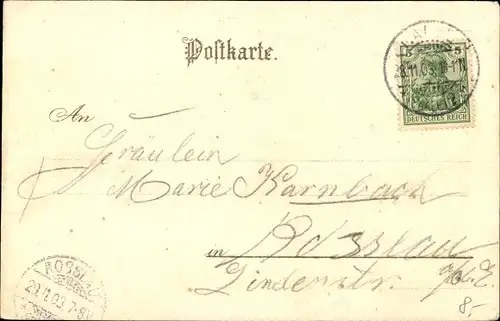 Postkarte.
5 5
28.11.03
DEUTSCHES REICH
An
Fräulein
Marie Karnbach
in Rosslau
Lindenstr.
ROSSL
29.11.03 7-8
8,-